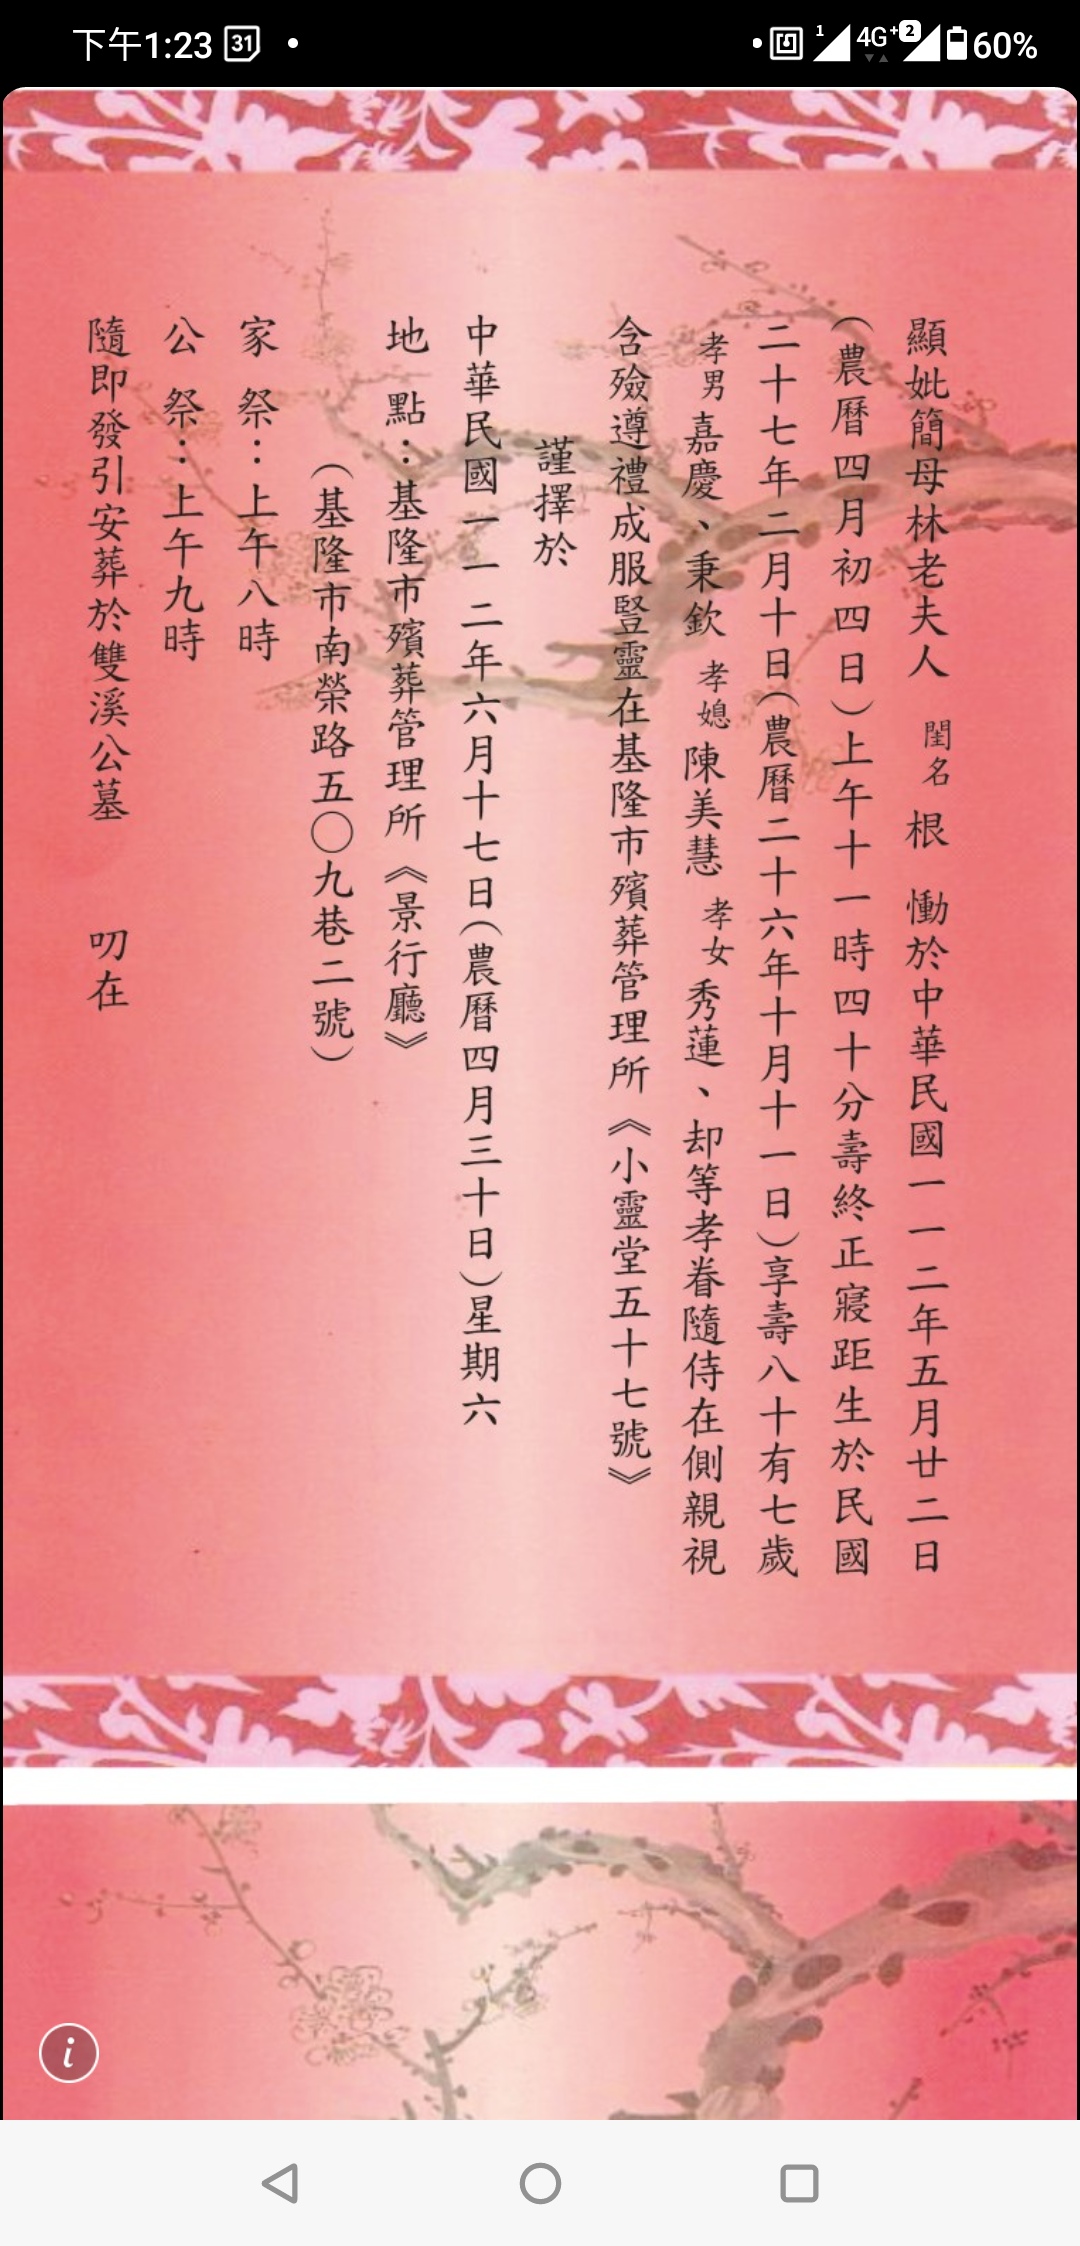 下午1:23 31
1 4G+ 2 60%
顯妣簡母林老夫人 閨名 根 慟於中華民國一一二年五月廿二日
（農曆四月初四日）上午十一時四十分壽終正寢距生於民國
二十七年二月十日（農曆二十六年十月十一日）享壽八十有七歲
孝男 嘉慶、秉欽 孝媳 陳美慧 孝女 秀蓮、却等孝眷隨侍在側親視
含殮遵禮成服豎靈在基隆市殯葬管理所《小靈堂五十七號》
謹擇於
中華民國一一二年六月十七日（農曆四月三十日）星期六
地 點：基隆市殯葬管理所《景行廳》
（基隆市南榮路五〇九巷二號）
家 祭：上午八時
公 祭：上午九時
隨即發引安葬於雙溪公墓 叨在
i